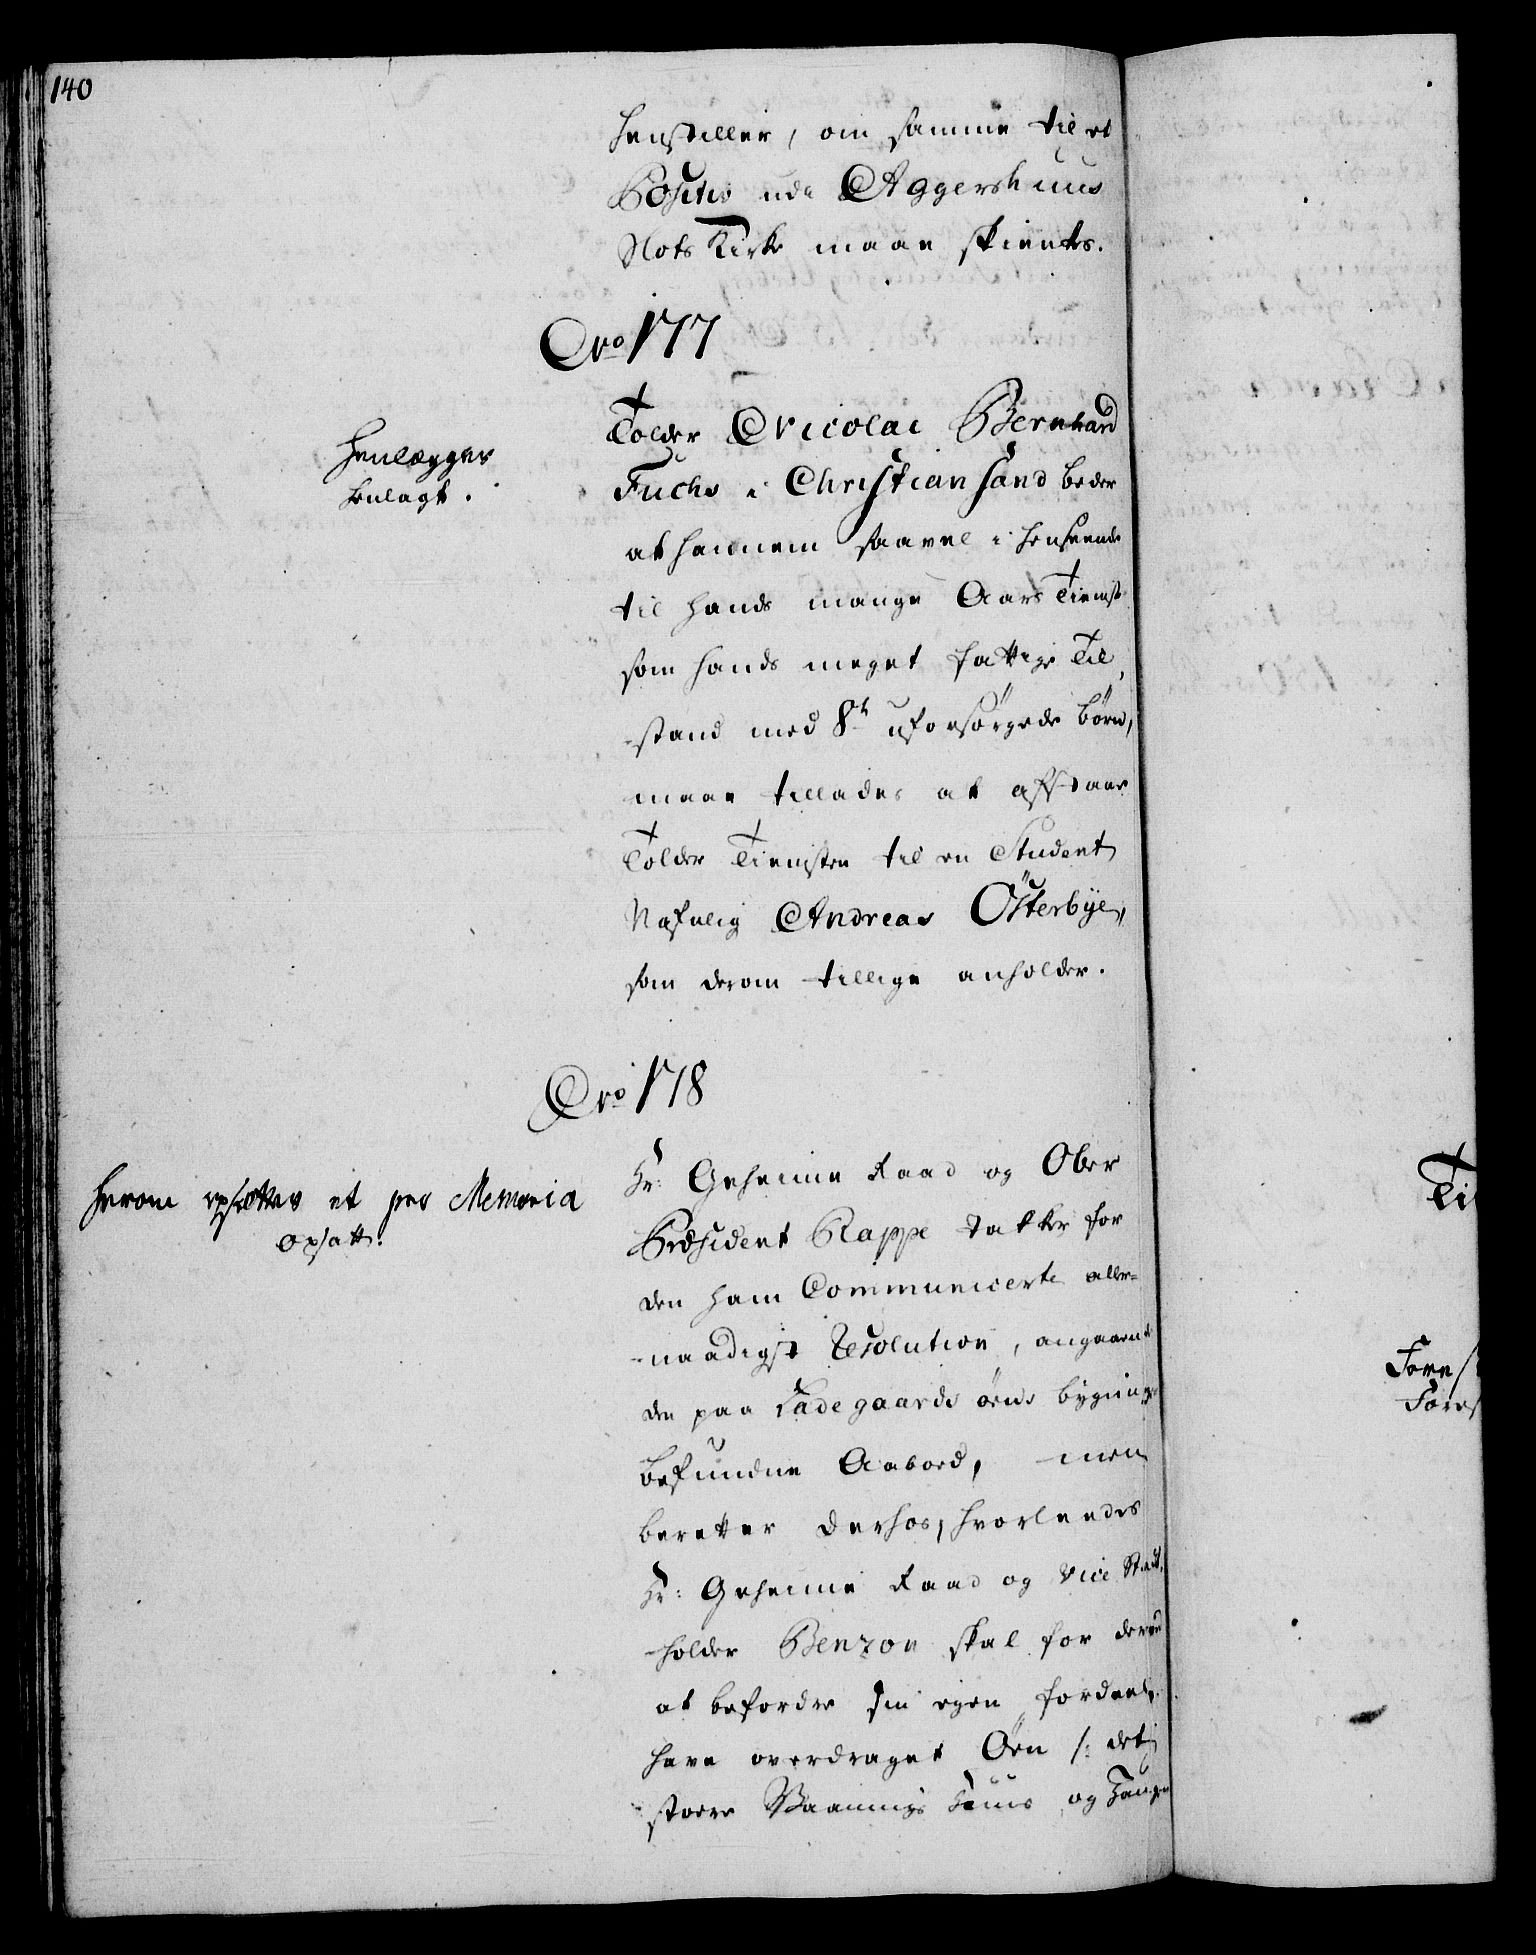 140
henstiller, om samme til et
Positiv udi Aggershuus
Slots Kirke maae skienkes.
No 177
Henlægges
henlagt.
Tolder Nicolai Bernhard
Fuchs i Christiansand beder
at hannem saavel i henseende
til hands mange Aars Tieniste
som hands meget fattige Til,
-stand med 8te uforsørgede børn,
maae tillades at afstaae
Tolder Tienisten til en Student
Nafnlig Andreas Østerbye,
som derom tillige anholder.
No 178
Herom opsættes et pro Memoria
opsatt.
Hr: Geheime Raad og Ober
Præsident Rappe takker for
den ham Communicerte aller=
-naadigst Resolution, angaaende
den paa Ladegaards øens bygninger
befundne Aaboed, men
beretter derhos, hvorleedes
Hr: Geheime Raad og Vice Stat,
-holder Benzon skal for derved
at befordre sin egen fordeel,
have overdraget Øen /: det
stoere Vaanings Huus og Haugen